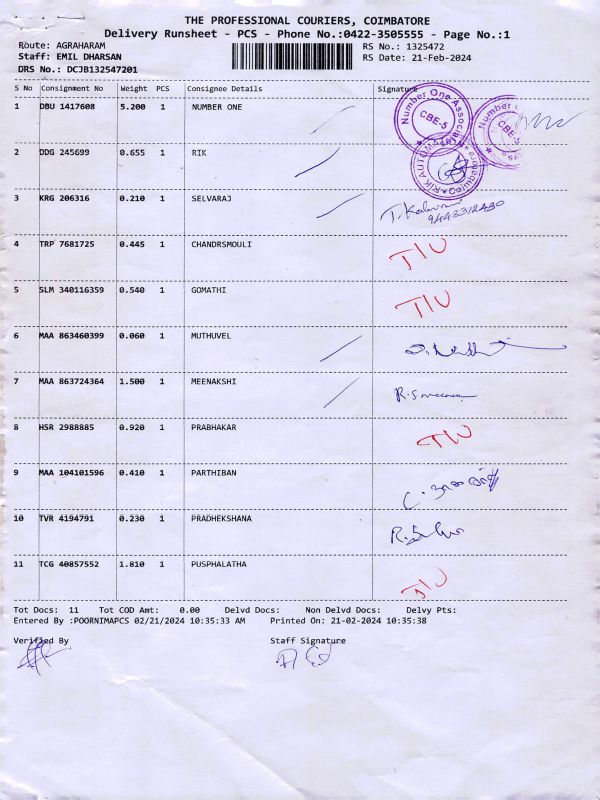 THE PROFESSIONAL COURIERS, COIMBATORE
Delivery Runsheet - PCS - Phone No.:0422-3505555 - Page No.:1
Route: AGRAHARAM RS No.: 1325472
Staff: EMIL DHARSAN RS Date: 21-Feb-2024
DRS No.: DCJB132547201
S No Consignment No Weight PCS Consignee Details Signature
1 DBU 1417608 5.200 1 NUMBER ONE
Number One Associates CBE-5
Number CBE-5
2 DDG 245699 0.655 1 RIK
RIK AUTOMATION
3 KRG 206316 0.210 1 SELVARAJ
9443312430
4 TRP 7681725 0.445 1 CHANDRSMOULI T/U
5 SLM 340116359 0.540 1 GOMATHI T/U
6 MAA 863460399 0.060 1 MUTHUVEL
7 MAA 863724364 1.500 1 MEENAKSHI
8 HSR 2988885 0.920 1 PRABHAKAR T/U
9 MAA 104101596 0.410 1 PARTHIBAN
10 TVR 4194791 0.230 1 PRADHEKSHANA
11 TCG 40857552 1.810 1 PUSPHALATHA T/U
Tot Docs: 11 Tot COD Amt: 0.00 Delvd Docs: Non Delvd Docs: Delvy Pts:
Entered By :POORNIMAPCS 02/21/2024 10:35:33 AM Printed On: 21-02-2024 10:35:38
Verified By Staff Signature